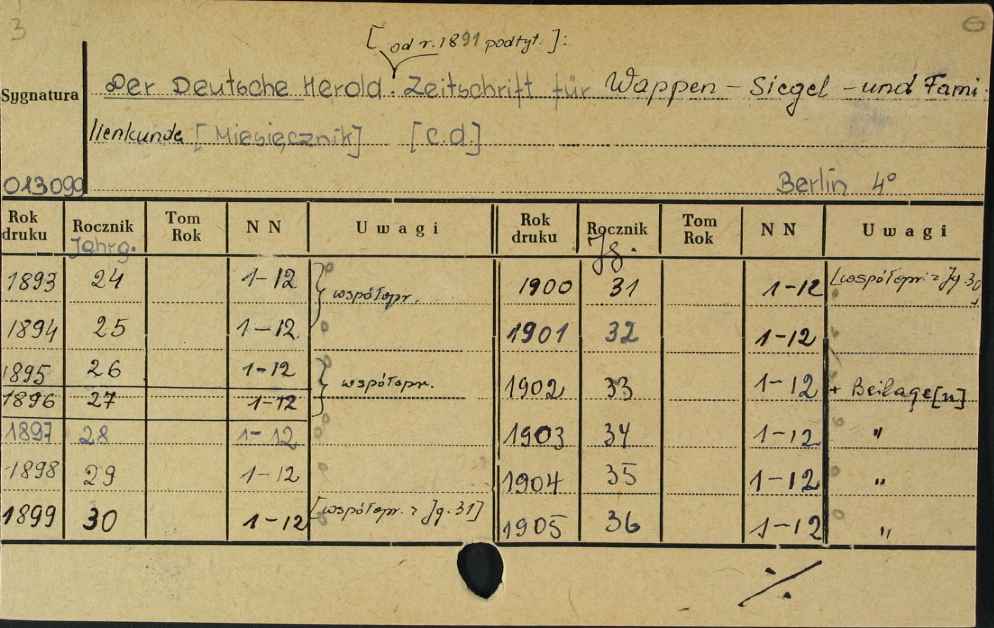 3
[od r. 1891 podtyt.]:
Sygnatura Der Deutsche Herold. Zeitschrift für Wappen - Siegel - und Fami-
lienkunde [Miesięcznik] [c.d.]
013099 Berlin 4°
Rok druku Rocznik Jahrg. Tom Rok N N Uwagi Rok druku Rocznik Jg. Tom Rok N N Uwagi
1893 24 1-12 współopr. 1900 31 1-12 [współopr. z Jg. 30]
1894 25 1-12 1901 32 1-12
1895 26 1-12 współopr. 1902 33 1-12 + Beilage[n]
1896 27 1-12
1897 28 1-12 1903 34 1-12 "
1898 29 1-12 1904 35 1-12 "
1899 30 1-12 [współopr. z Jg. 31] 1905 36 1-12 "